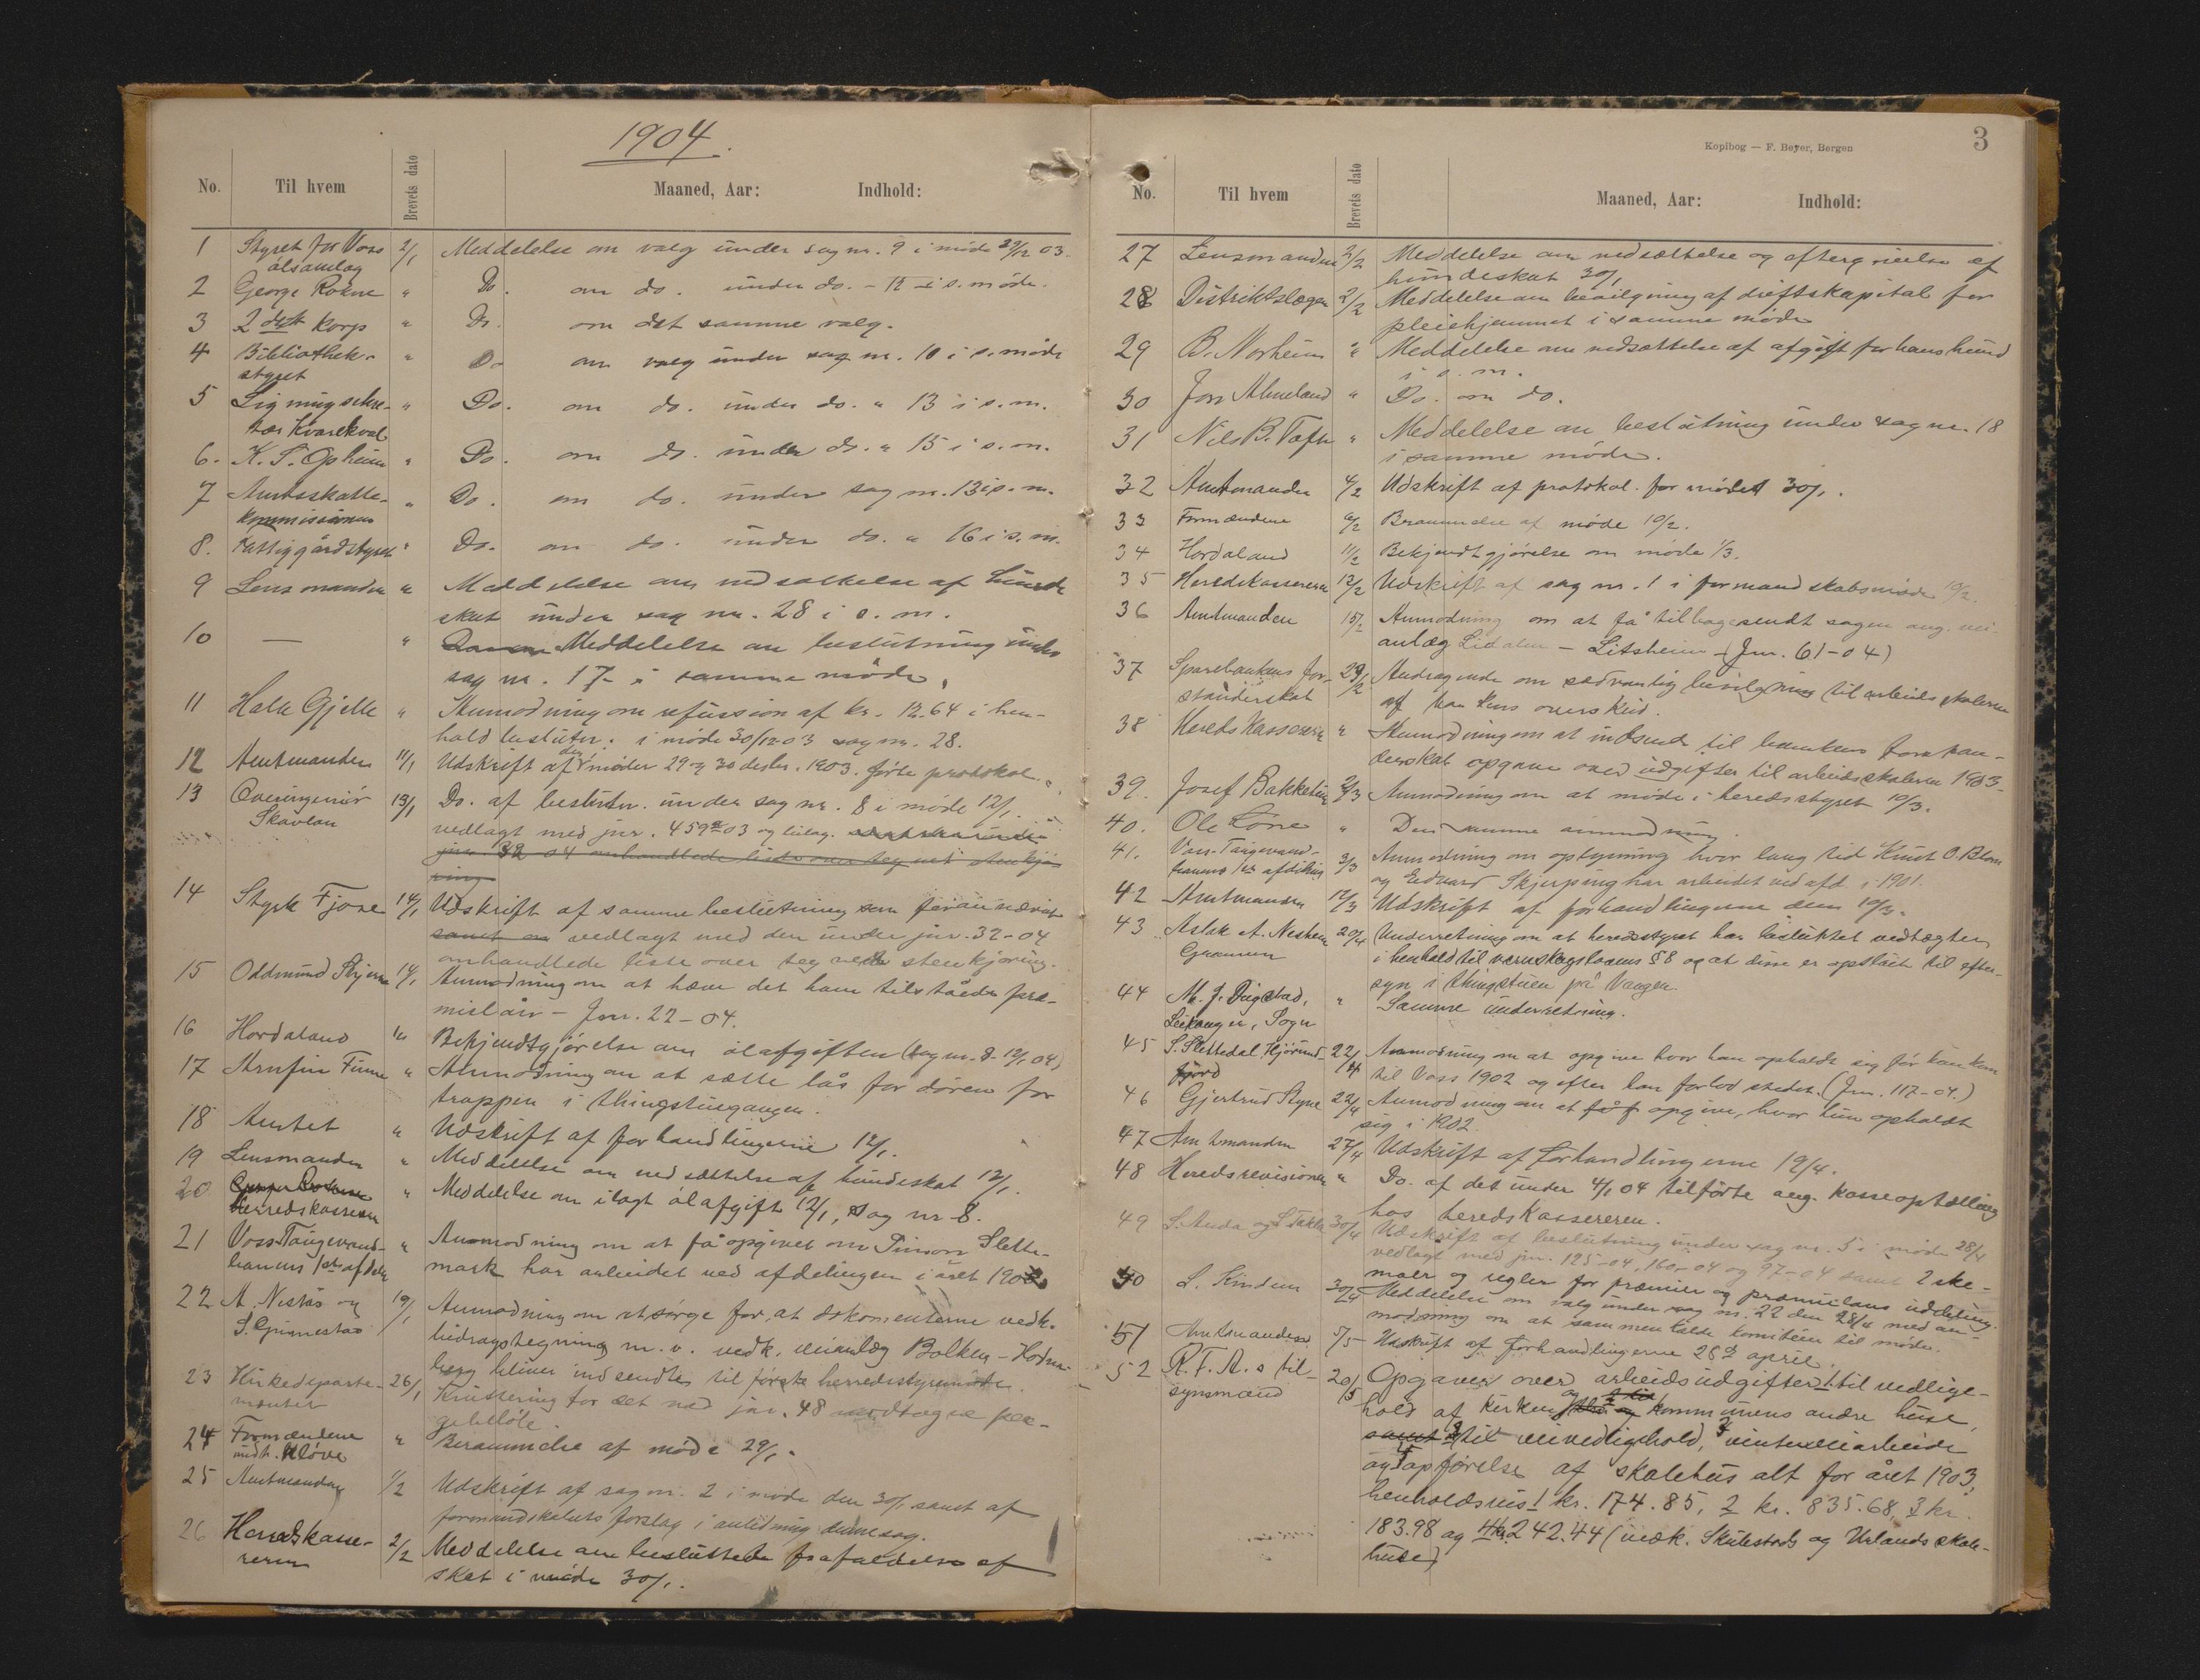 1904.
No. Til hvem Brevets dato Maaned, Aar: Indhold:
1 Styret for Voss 2/1 Meddelelse om valg under sag nr. 9 i møde 29/12 03.
ølsamlag
2 George Rokne " Do. om do. under do. - 12 - i s. møde.
3 2det Korps " Do. om det samme valg.
4 Bibliothek- " Do om valg under sag nr. 10 i s. møde
styret
5 Ligningsekre- " Do. om do. under do. " 13 i s. m.
tær Kvarekval
6. K. S. Opheim " Do. om do. under do. " 15 i s. m.
7 Amtsskatte- " Do. om do. under sag nr. 13 i s. m.
kommissionen
8. Fattiggårdstyret " Do. om do. under do. " 16 i s. m.
9 Lensmanden " Meddelelse om nedsættelse af hunde
skat under sag nr. 28 i s. m.
10 — " Meddelelse om beslutning under
sag nr. 17 i samme møde.
11 Halle Gjelle " Anmodning om refusion af kr. 12.64 i hen-
hold beslutn. i møde 30/12 03 sag nr. 28.
12 Amtmanden 11/1 Udskrift af den i møder 29 og 30 desbr. 1903. førte protokol.
13 Overingeniør 13/1 Do. af beslutn. under sag nr. 8 i møde 12/1.
Skavlan vedlagt med jnr. 459-03 og bilag.
jnr. 32 04 omhandlede liste over teg net stenkjø
ring
14 Styrk Fjose 14/1 Udskrift af samme beslutning som foran nævnt
samt en vedlagt med den under jnr. 32-04
omhandlede liste over tegnede stenkjøring.
15 Oddmund Skjerve 14/1 Anmodning om at hæve det ham tilståede præ-
mielån - Jnr. 22-04.
16 Hordaland " Bekjendtgjørelse om ølafgiften (sag nr. 8 12/1 04)
17 Arnfin Finne " Anmodning om at sætte lås for døren for
trappen i thingstuegangen.
18 Amtet " Udskrift af forhandlingerne 12/1.
19 Lensmanden " Meddelelse om nedsættelse af hundeskat 12/1.
20 Herredskasseren " Meddelelse om ilagt ølafgift 12/1, sag nr 8.
21 Voss-Taugevand- " Anmodning om at få opgivet om Simon Slette-
banens 1ste afdeln mark har arbeidet ved afdelingen i året 1902
22 A. Nestås og 19/1 Anmodning om at sørge for, at dokumenterne vedk.
S. Grimestad bidragstegning m. v. vedk. veianlæg Bolken - Hodna-
berg bliver indsendte til første herredsstyremøde.
23 Kirkedeparte- 26/1 Kvittering for det ved jnr. 48 modtagne pen-
mentet gebeløb.
24 Formændene " Berammelse af møde 29/1.
undt. Kløve
25 Amtmanden 1/2 Udskrift af sag nr. 2 i møde den 30/1 samt af
formandskabets forslag i anledning denne sag.
26 Herredskasse- 2/2 Meddelelse om besluttede frafaldelse af
reren skat i møde 30/1.
Kopibog — F. Beyer, Bergen 3
No. Til hvem Brevets dato Maaned, Aar: Indhold:
27 Lensmanden 2/2 Meddelelse om nedsættelse og eftergivelse af
hundeskat 30/1
28 Distriktslægen 2/2 Meddelelse om bevilgning af driftskapital for
pleiehjemmet i samme møde
29 B. Norheim " Meddelelse om nedsættelse af afgift for hans hund
i s. m.
30 Jon Almeland " Do. om do.
31 Nils B. Tofte " Meddelelse om beslutning under sag nr. 18
i samme møde.
32 Amtmanden 4/2 Udskrift af protokol. for mødet 30/1.
33 Formændene 6/2 Berammelse af møde 10/2.
34 Hordaland 11/2 Bekjendtgjørelse om møde 1/3.
35 Heredskassereren 12/2 Udskrift af sag nr. 1 i formandskabsmøde 10/2.
36 Amtmanden 15/2 Anmodning om at få tilbagesendt sagen ang. vei-
anlæg Lidalen - Litsheim - (Jnr. 61-04)
37 Sparebankens for- 29/2 Andragende om sædvanlig bevilgning til arbeidsskolerne
standerskab af bankens overskud.
38 Hereds Kassereren " Anmodning om at indsende til bankens forstan-
derskab opgave over udgifter til arbeidsskolerne 1903-
39. Josef Bakketun 2/3 Anmodning om at møde i heredsstyret 10/3.
40. Ole Lone " Den samme anmodning.
41. Voss-Taugevand- 3/3 Anmodning om oplysning hvor lang tid Knut O. Blom
banens 1ste afdeling og Edvard Skjerping har arbeidet ved afd. i 1901.
42 Amtmanden 12/3 Udskrift af forhandlingerne den 10/3.
43 Aslak A. Nesheim 20/4 Underretning om at heredsstyret har besluttet vedtægter
Granvin i henhold til værnskogslovens § 8 og at disse er opslået til efter-
syn i thingstuen på Vangen.
44 M. J. Dugstad, " Samme underretning.
Leikanger, Sogn
45 S. Slettedal, Hjørund- 22/4 Anmodning om at opgive hvor han opholdt sig før han kom
fjord til Voss 1902 og efter han forlod stedet. (Jnr. 117-04.)
46 Gjertrud Ryne 22/4 Anmodning om at opgive, hvor hun opholdt
sig i 1902.
47 Amtmanden 27/4 Udskrift af forhandlingerne 19/4.
48 Heredsrevisionen " Do. af det under 4/1 04 tilførte ang. kasseoptælling
hos heredskassereren.
49 S. Anda og S. Takla 30/4 Udskrift af beslutning under sag nr. 5 i møde 28/4
vedlagt med jnr. 125-04, 160-04 og 97-04 samt 2 ske-
maer og regler for præmier og præmielåns uddeling.
50 L. Kindem 30/4 Meddelelse om valg under sag nr. 22 den 28/4 med an-
modning om at sammenkalde komiteen til møde.
51 Amtmanden 5/5 Udskrift af forhandlingerne 28de april.
52 R. F. A.s til- 20/5 Opgaver over arbeidsudgifter 1 til vedlige-
synsmand hold af kirken og kommunens andre huse,
samt 2 til veivedligehold, 3 vinterveiarbeide
og 4 opførelse af skolehus alt for året 1903,
henholdsvis 1 kr. 174.85, 2 kr. 835.68, 3 kr.
183.98 og 4 kr. 242.44 (vedk. Skulestads og Urlands skole-
huse)